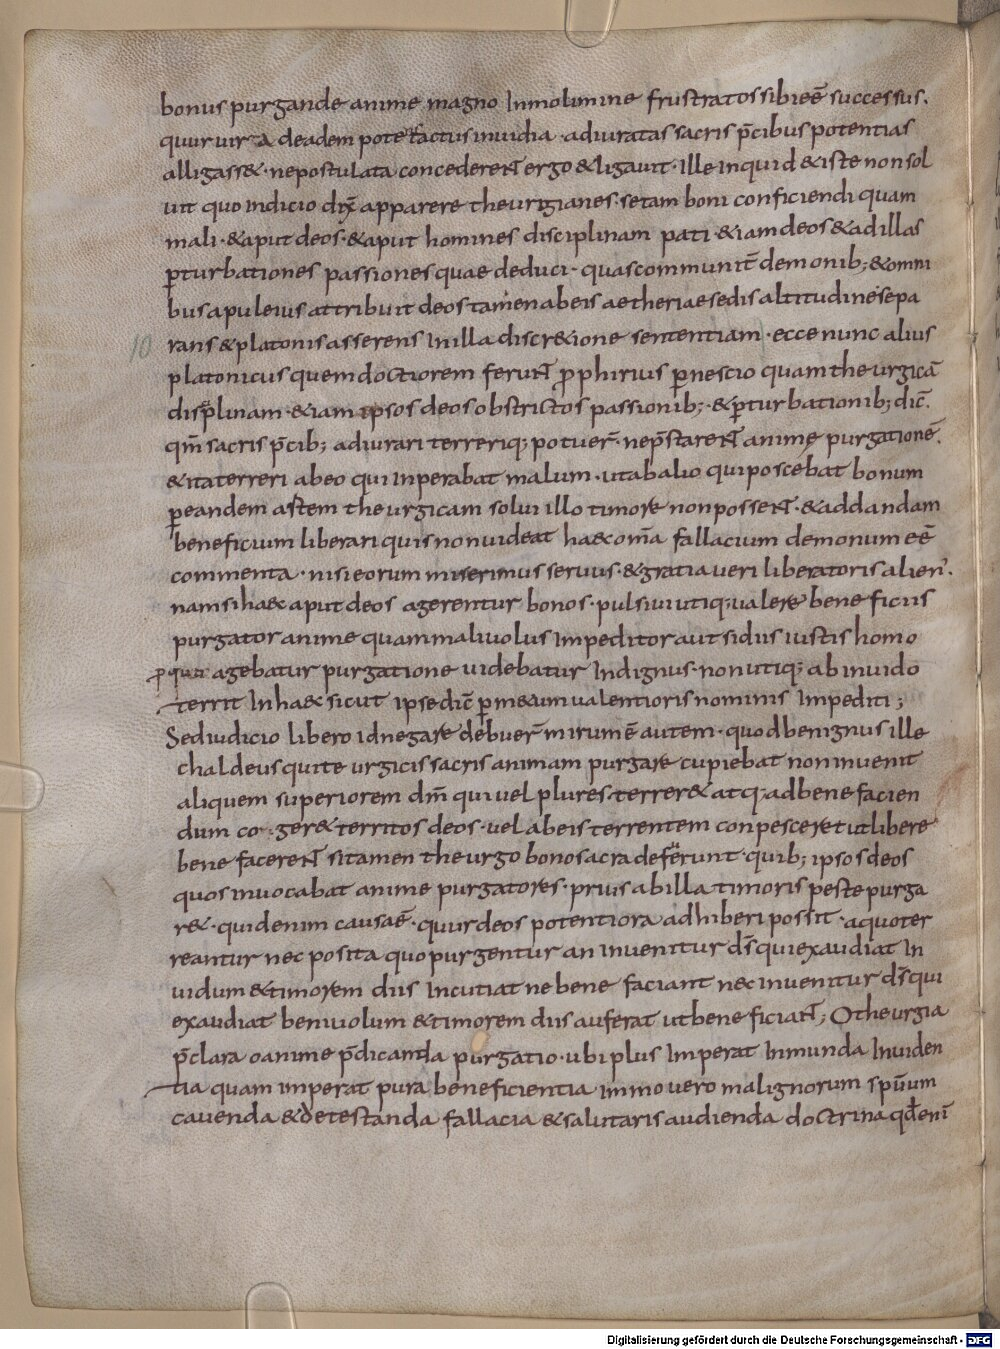 bonus purgande anime magno Inmolimine frustratos sibi eē successus.
quur uir ad eadem potens tactus inuidia · adiuratas sacris p̄cibus potentias
alligass& · ne postulata concederent ergo & ligauit · Ille inquid & iste non sol
uit quo indicio dix̄ apparere theurgian es · se tam boni conficiendi quam
mali · & aput deos · & aput homines disciplinam pati · & iam deos & ad illas
p̱turbationes passionesquae deduci · quas communit̄ demonib; & omni
bus apuleius attribuit deos tamen ab eis aetheriae sedis altitudine sepa
10 rans & platonis asserens In illa discr&ione sententiam · ecce nunc alius
platonicus quem doctiorem ferunt ꝓphirius p̱ nescio quam theurgicā
disp̱linam · & iam ipsos deos obstrictos passionib; · & p̱turbationib; dic̄.
qm̄ sacris p̄cib; adiurari terreriq; potuer̄ · ne p̄starent anime purgationē.
& ita terreri ab eo qui Inperabat malum · ut ab alio qui poscebat bonum
p̱ eandem astem theurgicam solui illo timore non possent · & ad dandam
beneficium liberari quis non uideat ha&c om̄a fallacium demonum eē
commenta · nisi eorum miserimus seruus · & gratia ueri liberatoris alien'.
nam si ha&c aput deos agerentur bonos · plus ibi utiq; ualere beneficus
purgator anime quam maliuolus Impeditor aut si diis iustis homo
p̱ quo agebatur purgatione uidebatur Indignus · non utiq; ab inuido
territ In ha&c sicut ipse dic̄ p̱ m&um ualentioris nominis Impediti;
Sed iudicio libero id negare debuer̄ mirum ē autem · quod benignus ille
chaldeus qui te urgicis sacris animam purgare cupiebat non inuenit
aliquem superiorem dm̄ qui uel plures terrer& atq; ad bene facien
dum coger& territos deos · uel ab eis terrentem conpesceret ut libere
bene facerent si tamen theurgo bono sacra deferunt · quib; ipsos deos
quos inuocabat anime purgatores · prius ab illa timoris peste purga
r& · quid enim causae ē · quur deos potentiora adhiberi possit · a quo ter
reantur nec posit a quo purgentur an Inuenitur ds̄ qui exaudiat In
uidum & timorem diis Incutiat ne bene faciant nec inuenitur ds̄ qui
exaudiat beniuolum & timorem diis auferat ut bene ficiant; O theurgia
p̄clara o anime p̄dicanda purgatio · ubi plus Imperat Inmunda Inuiden
tia quam imperat pura beneficientia immo uero malignorum sp̄uum
cauenda & detestanda fallacia & salutaris audienda doctrina qd̄ enī
Digitalisierung gefördert durch die Deutsche Forschungsgemeinschaft - DFG